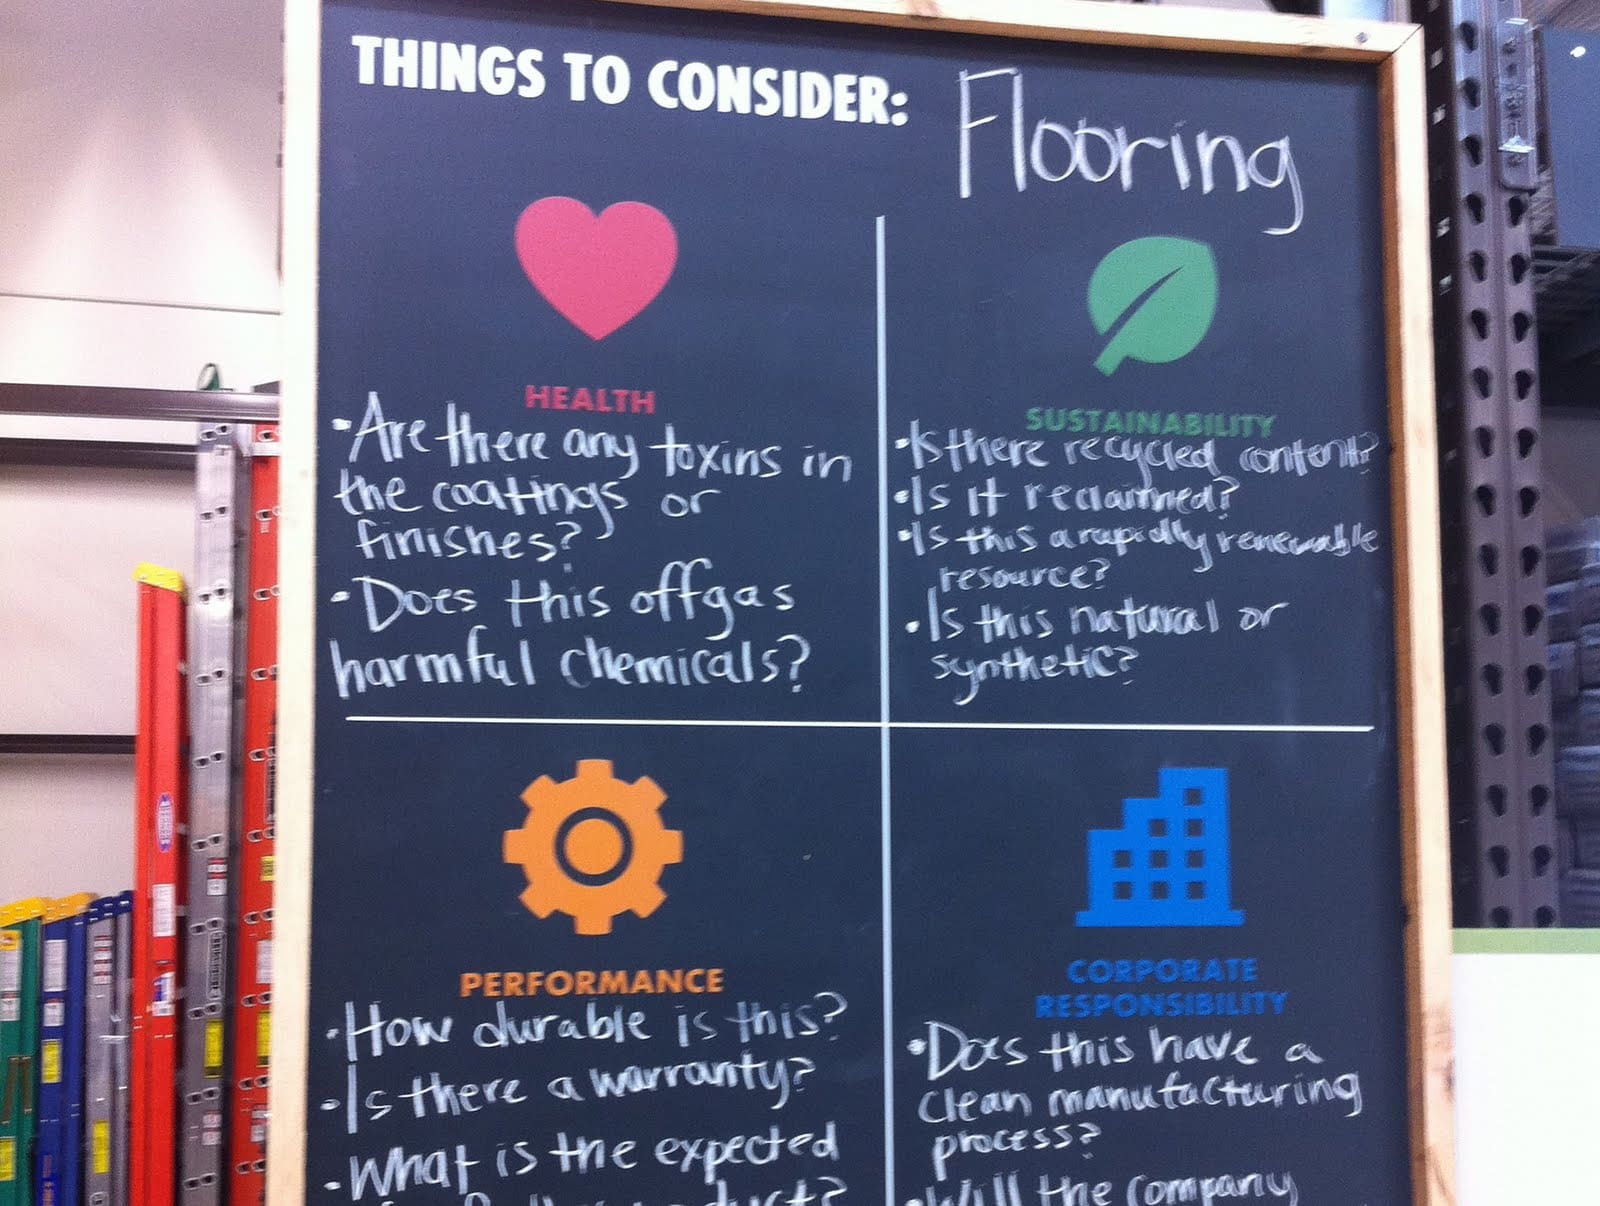 THINGS TO CONSIDER: Flooring
HEALTH
• Are there any toxins in
the coatings or
finishes?
• Does this offgas
harmful chemicals?
SUSTAINABILITY
• Is there recycled content?
• Is it reclaimed?
• Is this a rapidly renewable
resource?
• Is this natural or
synthetic?
PERFORMANCE
• How durable is this?
• Is there a warranty?
• What is the expected
CORPORATE
RESPONSIBILITY
• Does this have a
clean manufacturing
process?
• Will the company